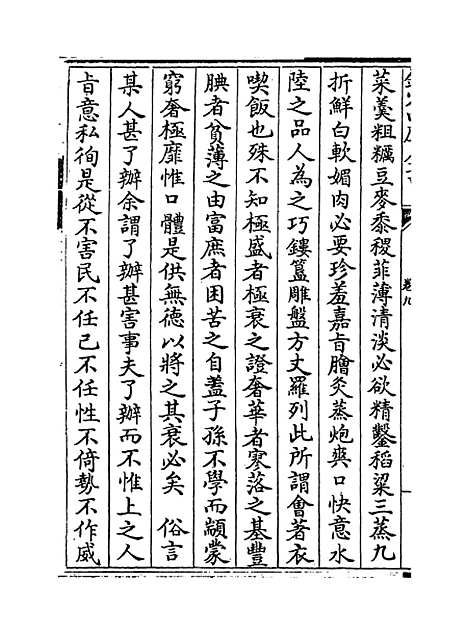 卷九
菜羹粗糲豆麥黍稷菲薄清淡必欲精鑿稻粱三蒸九
折鮮白軟媚肉必要珍羞嘉旨膾炙蒸炮爽口快意水
陸之品人為之巧鏤簋雕盤方丈羅列此所謂會著衣
喫飯也殊不知極盛者極衰之證奢華者寥落之基豐
腆者貧薄之由富庶者困苦之自蓋子孫不學而顓蒙
窮奢極靡惟口體是供無德以將之其衰必矣　俗言
某人甚了辦余謂了辦甚害事夫了辦而不惟上之人
旨意私徇是從不害民不任己不任性不倚勢不作威